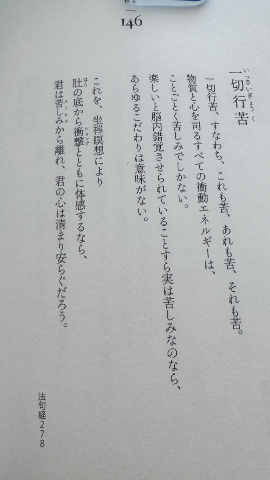 146
一切行苦
一切行苦、すなわち、これも苦、あれも苦、それも苦。
物質と心を司るすべての衝動エネルギーは、
ことごとく苦しみでしかない。
楽しいと脳内錯覚させられていることすら実は苦しみなのなら、
あらゆるこだわりは意味がない。
これを、坐禅瞑想により
肚の底から衝撃とともに体感するなら、
君は苦しみから離れ、君の心は清まり安らぐだろう。
法句経278